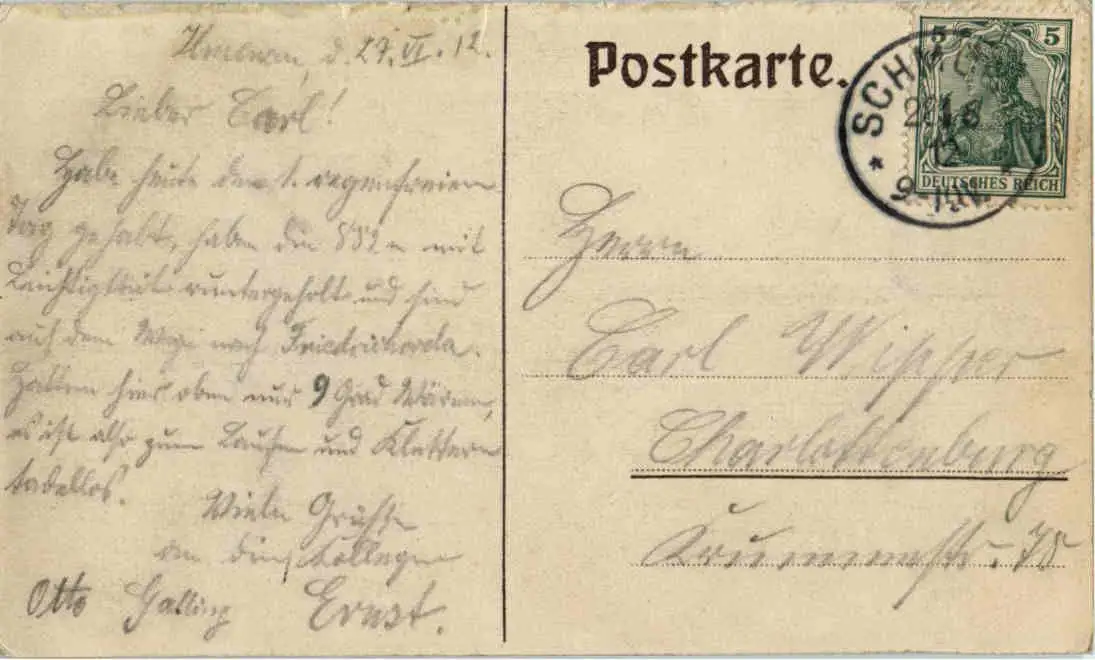 Ilmenau, d. 27. VI. 12.
Lieber Carl!
Habe heute den 1. regenfreien
Tag gehabt, haben die 882 m mit
Leichtigkeit runtergeholt und sind
auf dem Wege nach Friedrichroda.
Hatten hier oben nur 9 Grad Wärme,
es ist also zum Laufen und Klettern
tadellos.
Viele Grüsse
an die Kollegen
Otto Ernst.
Postkarte.
5 5
DEUTSCHES REICH
SCHM
9-10V.
Herrn
Carl Wipper
Charlottenburg
Krummestr. 78